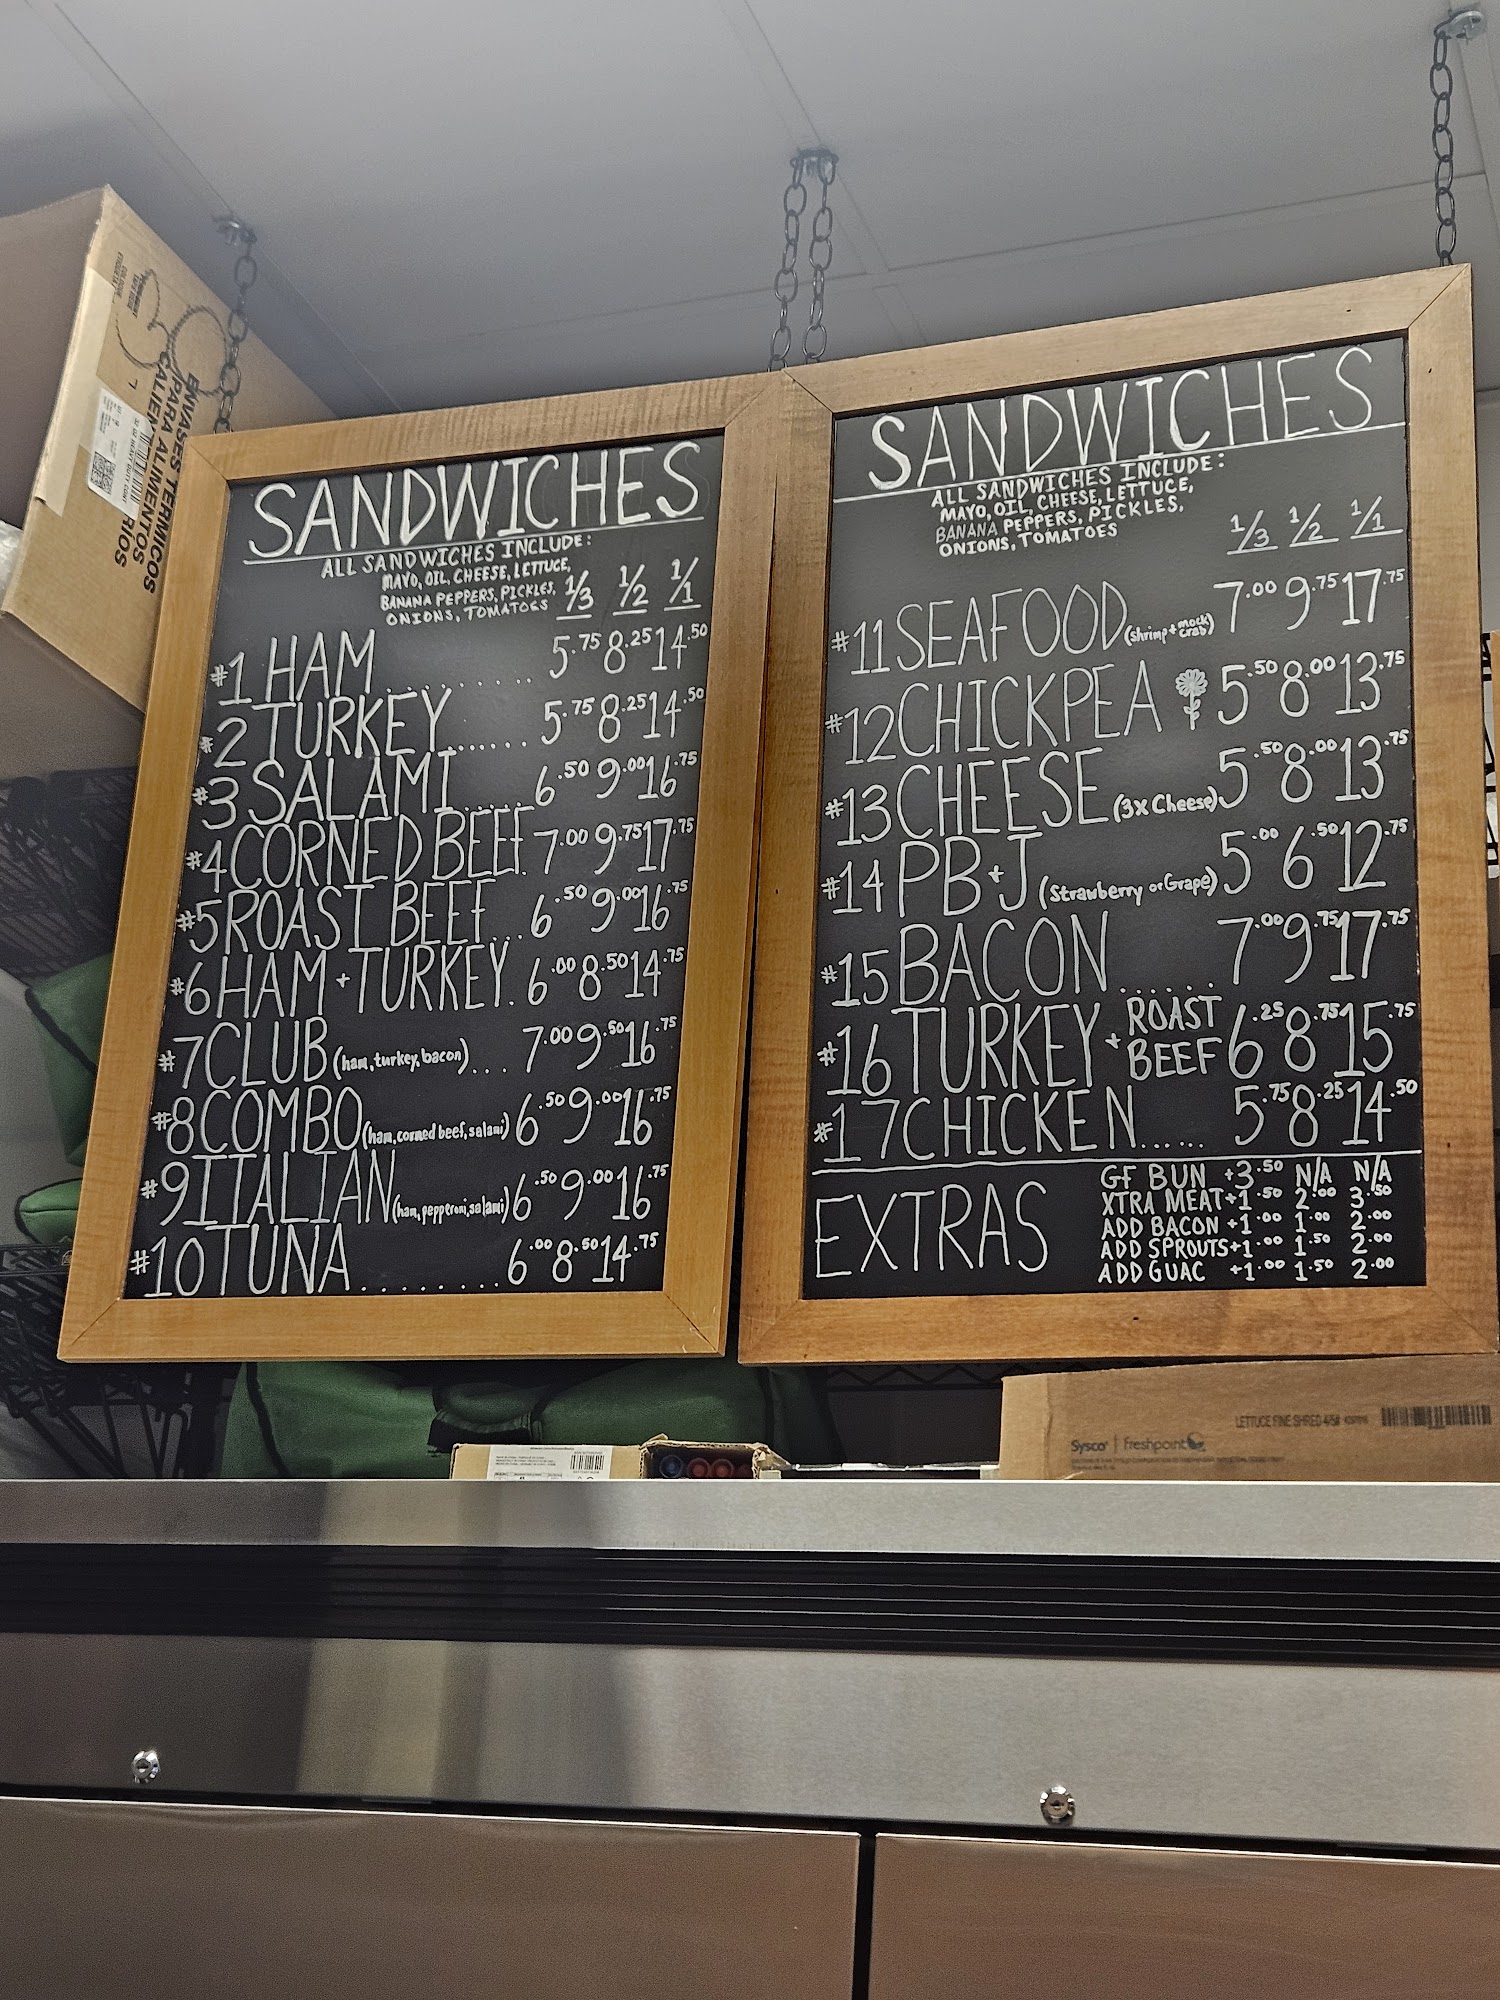 SANDWICHES
ALL SANDWICHES INCLUDE:
MAYO, OIL, CHEESE, LETTUCE,
BANANA PEPPERS, PICKLES,
ONIONS, TOMATOES
1/3 1/2 1/1
#1 HAM ......... 5.75 8.25 14.50
#2 TURKEY ...... 5.75 8.25 14.50
#3 SALAMI ...... 6.50 9.00 16.75
#4 CORNED BEEF. 7.00 9.75 17.75
#5 ROAST BEEF ... 6.50 9.00 16.75
#6 HAM + TURKEY. 6.00 8.50 14.75
#7 CLUB (ham, turkey, bacon)... 7.00 9.50 16.75
#8 COMBO (ham, corned beef, salami) 6.50 9.00 16.75
#9 ITALIAN (ham, pepperoni, salami) 6.50 9.00 16.75
#10 TUNA ......... 6.00 8.50 14.75
SANDWICHES
ALL SANDWICHES INCLUDE:
MAYO, OIL, CHEESE, LETTUCE,
BANANA PEPPERS, PICKLES,
ONIONS, TOMATOES
1/3 1/2 1/1
#11 SEAFOOD (shrimp + mock crab) 7.00 9.75 17.75
#12 CHICKPEA 5.50 8.00 13.75
#13 CHEESE (3x Cheese) 5.50 8.00 13.75
#14 PB+J (Strawberry or Grape) 5.00 6.50 12.75
#15 BACON ...... 7.00 9.75 17.75
#16 TURKEY + ROAST BEEF 6.25 8.75 15.75
#17 CHICKEN ...... 5.75 8.25 14.50
EXTRAS
GF BUN +3.50 N/A N/A
XTRA MEAT +1.50 2.00 3.50
ADD BACON +1.00 1.00 2.00
ADD SPROUTS +1.00 1.50 2.00
ADD GUAC +1.00 1.50 2.00
ENVASES TERMICOS
PARA ALIMENTOS
LETTUCE FINE SHRED
Sysco | Freshpoint